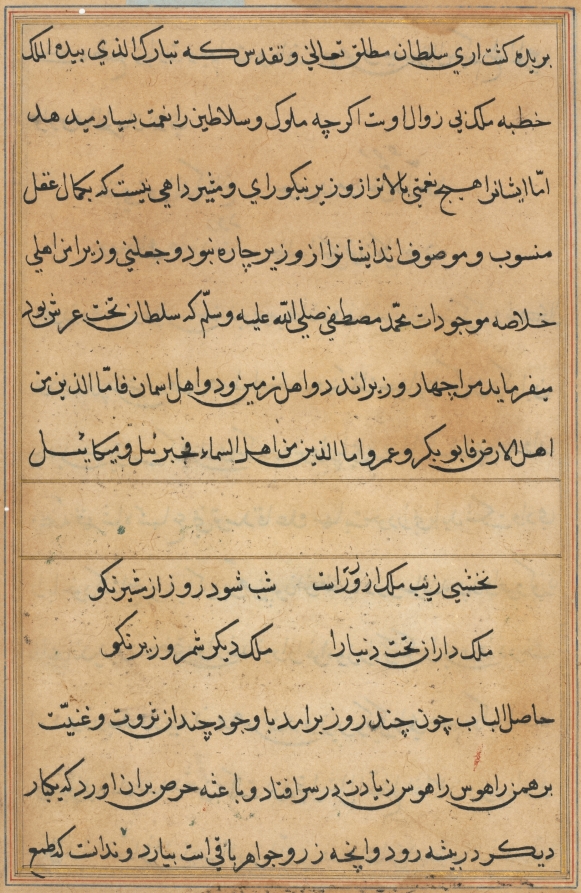 بریده کشت اری سلطان مطلق تعالی و تقدس که تبارک الذی بیده الملک
خطبه ملک بی زوال اوست اکر چه ملوک و سلاطین را نعمت بسیار میدهد
اما ایشانرا هیچ نعمتی بالاتر از وزیر نیکو رای و مشیر داهی نیست که بکمال عقل
منسوب و موصوف اند ایشانرا از وزیر چاره نبود و جعلنی وزیرا من اهلی
خلاصه موجودات محمد مصطفی صلی الله علیه وسلّم که سلطان تخت عرش بود
میفرماید مرا چهار وزیراند دو اهل زمین و دو اهل اسمان فامّا الذین من
اهل الارض فابو بکر و عمر و اما الذین من اهل السماء فجبرئیل و میکائیل
نخشبی زیب ملک از وزراست شب شود روز از مشیر نکو
ملک داران تخت دنیا را ملک دیکر شمر وزیر نکو
حاصل الباب چون چند روز برامد با وجود چندان ثروت و غنیّت
برهمن را هوس را هوس زیادت در سر افتاد و باعثه حرص بران اورد که یکبار
دیکر در بیشه رود و انچه زر و جواهر باقی است بیارد و ندانست که طمع